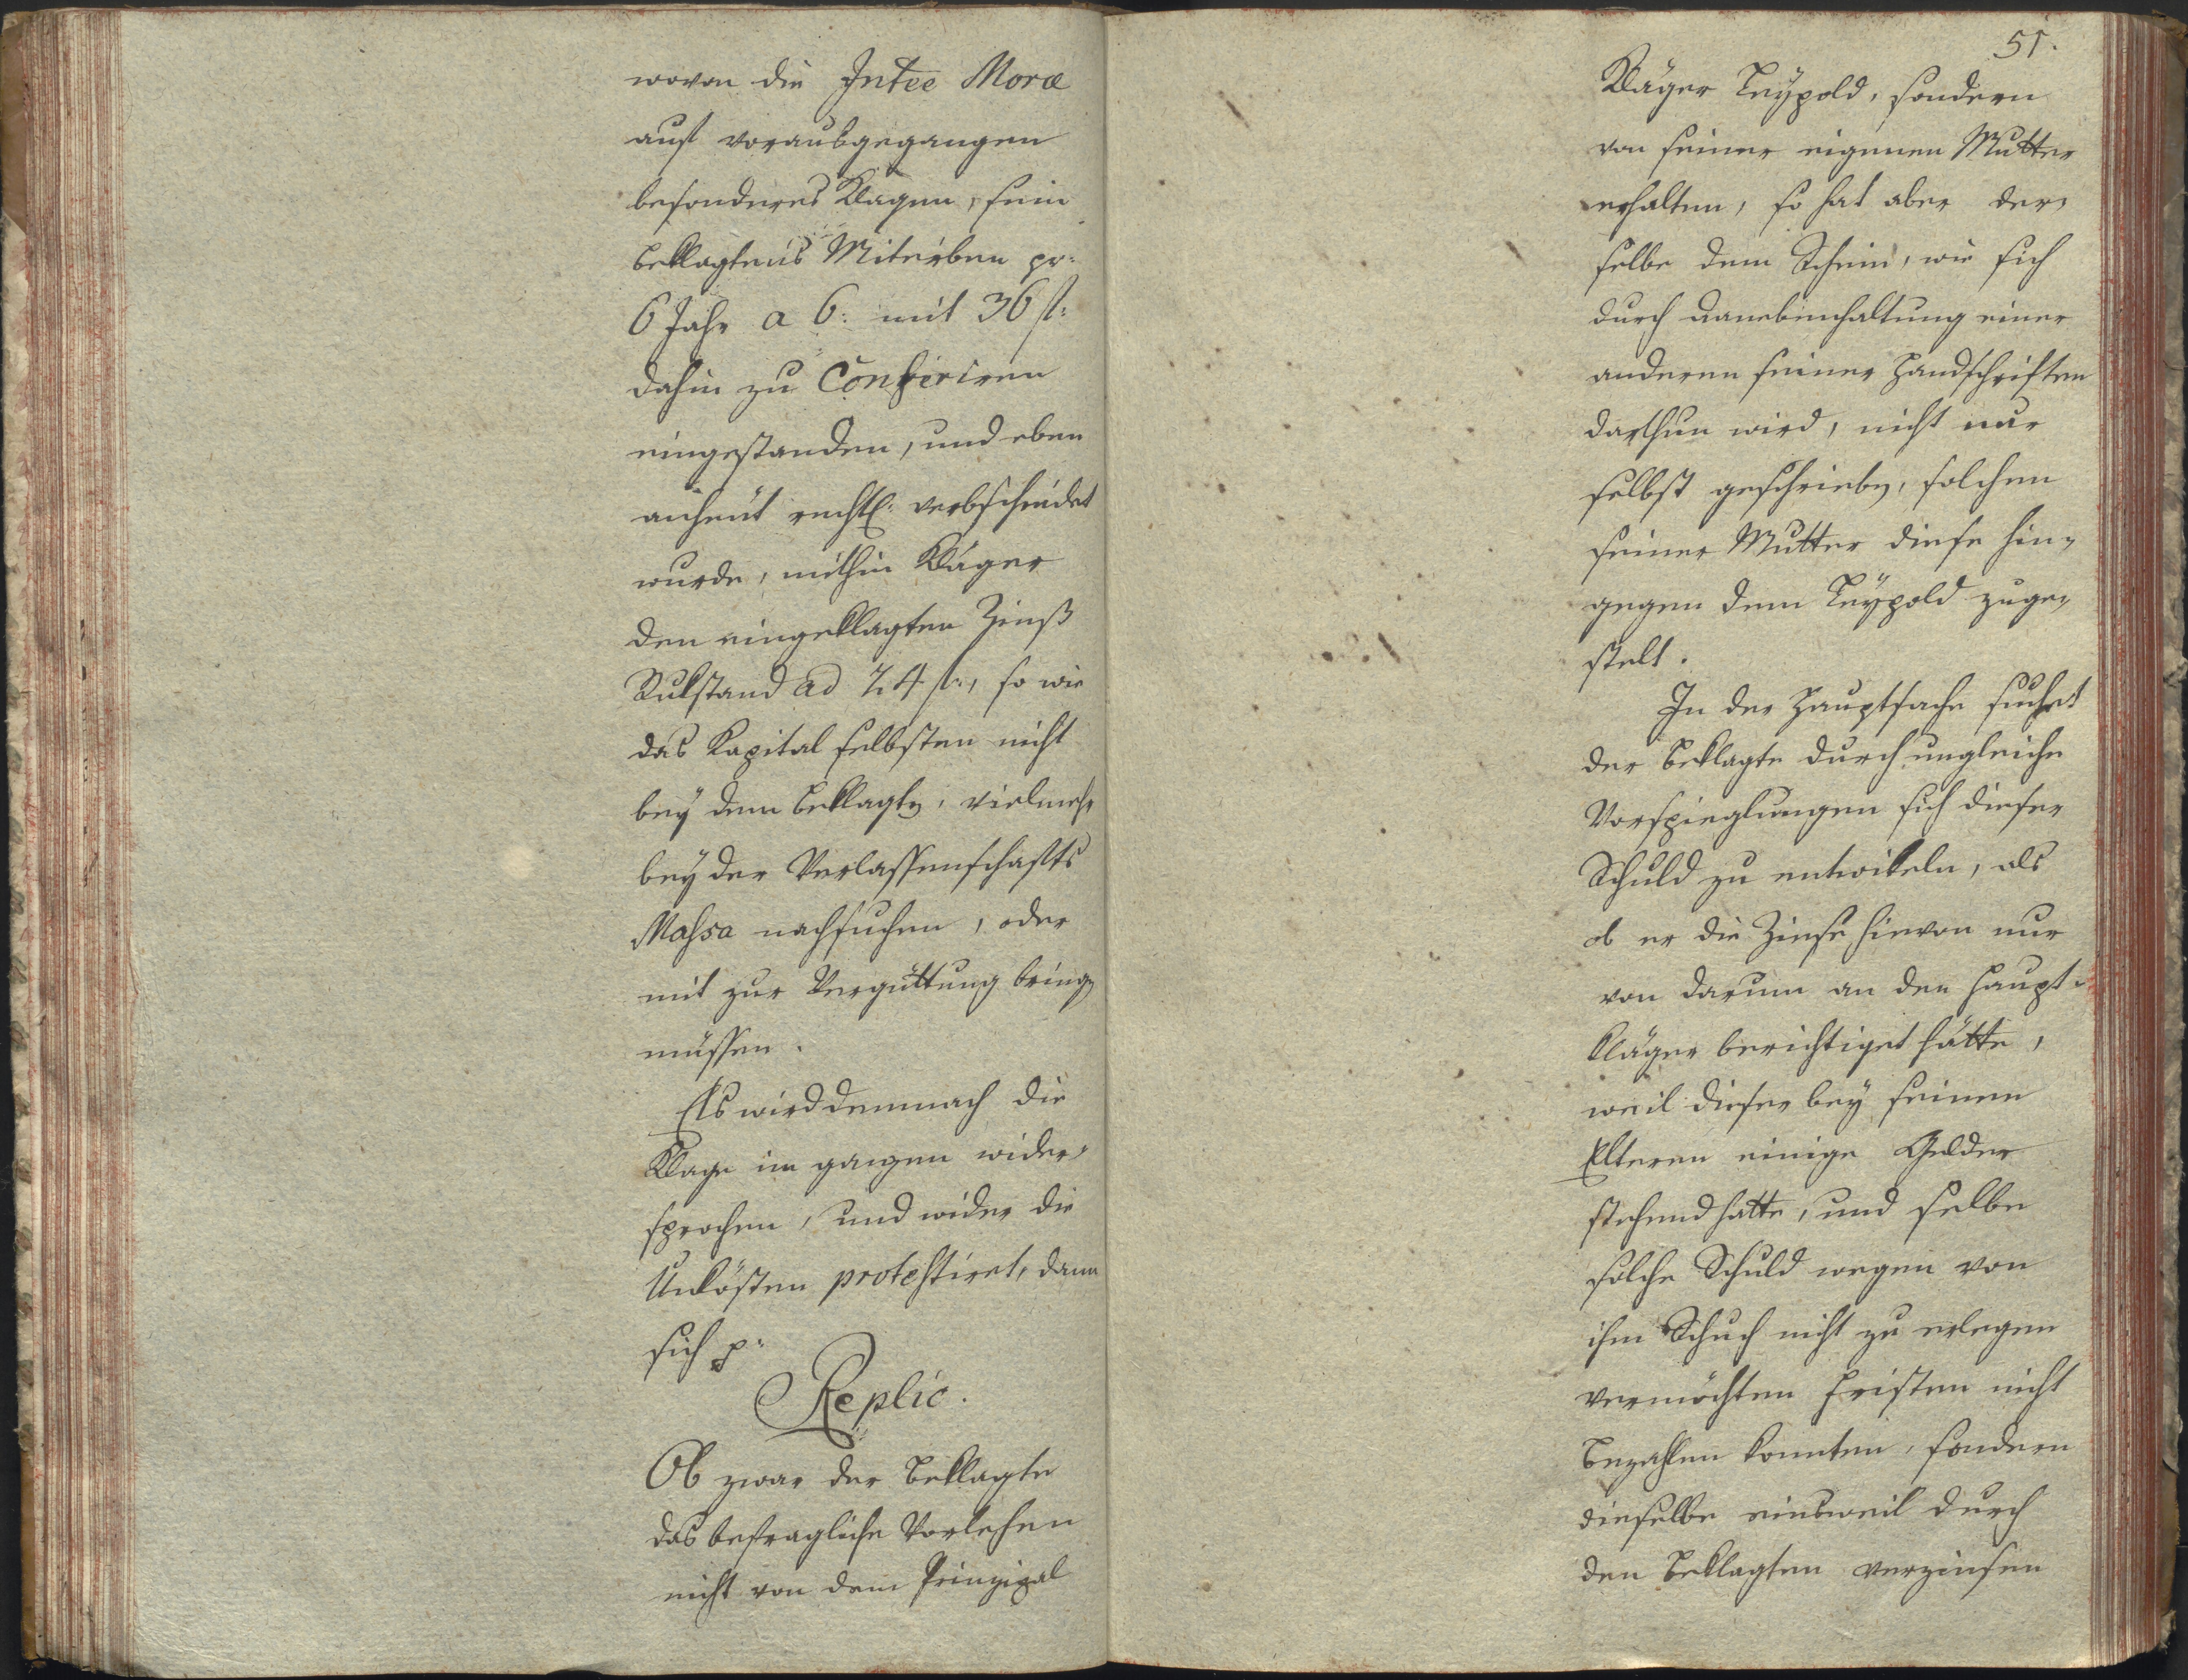 wovon die Intee Morae
auf vorausgegangen
besonderes Klagen, sein
Beklagtens Miterben pr:
6 Jahr a 6: mit 36 fl:
dahin zu Conferiren
eingestanden, und eben
anheut rechtl: verbscheidet
wurde, mithin Kläger
den eingeklagten Zinß
Rukstand ad 24 fl:, so wie
das Kapital selbsten nicht
bey dem Beklagten, vielmehr
bey der Verlassenschafts
Massa nachsuchen, oder
mit zur Vergüttung bringen
müssen.
Es wird demnach die
Klage im ganzen wider-
sprochen, und wider die
Unkösten protestiret, dann
sich p:
Replic.
Ob zwar der Beklagte
das befragliche Vorlehen
nicht von dem Prinzipal
51.
Kläger Leypold, sondern
von seiner eigenen Mutter
erhalten, so hat aber der-
selbe dem Schein, wie sich
durch danebenhaltung einer
anderen seiner Handschriften
darthun wird, nicht nur
selbst geschrieben, solchen
seiner Mutter diese hin-
gegen dem Leypold zuge-
stelt.
In der Hauptsache suchet
der Beklagte durch ungleiche
Vorspieglungen sich dieser
Schuld zu entwikeln, als
ob er die Zinse hievon nur
von darum an den Haupt-
kläger berichtiget hätte,
weil dieser bey seinen
Elteren einige Gelder
stehend hatte, und selbe
solche Schuld wegen von
ihm Schuch nicht zu erlegen
vermöchten Fristen nicht
bezahlen konnten, sondern
dieselbe einsweil durch
den Beklagten verzinsen